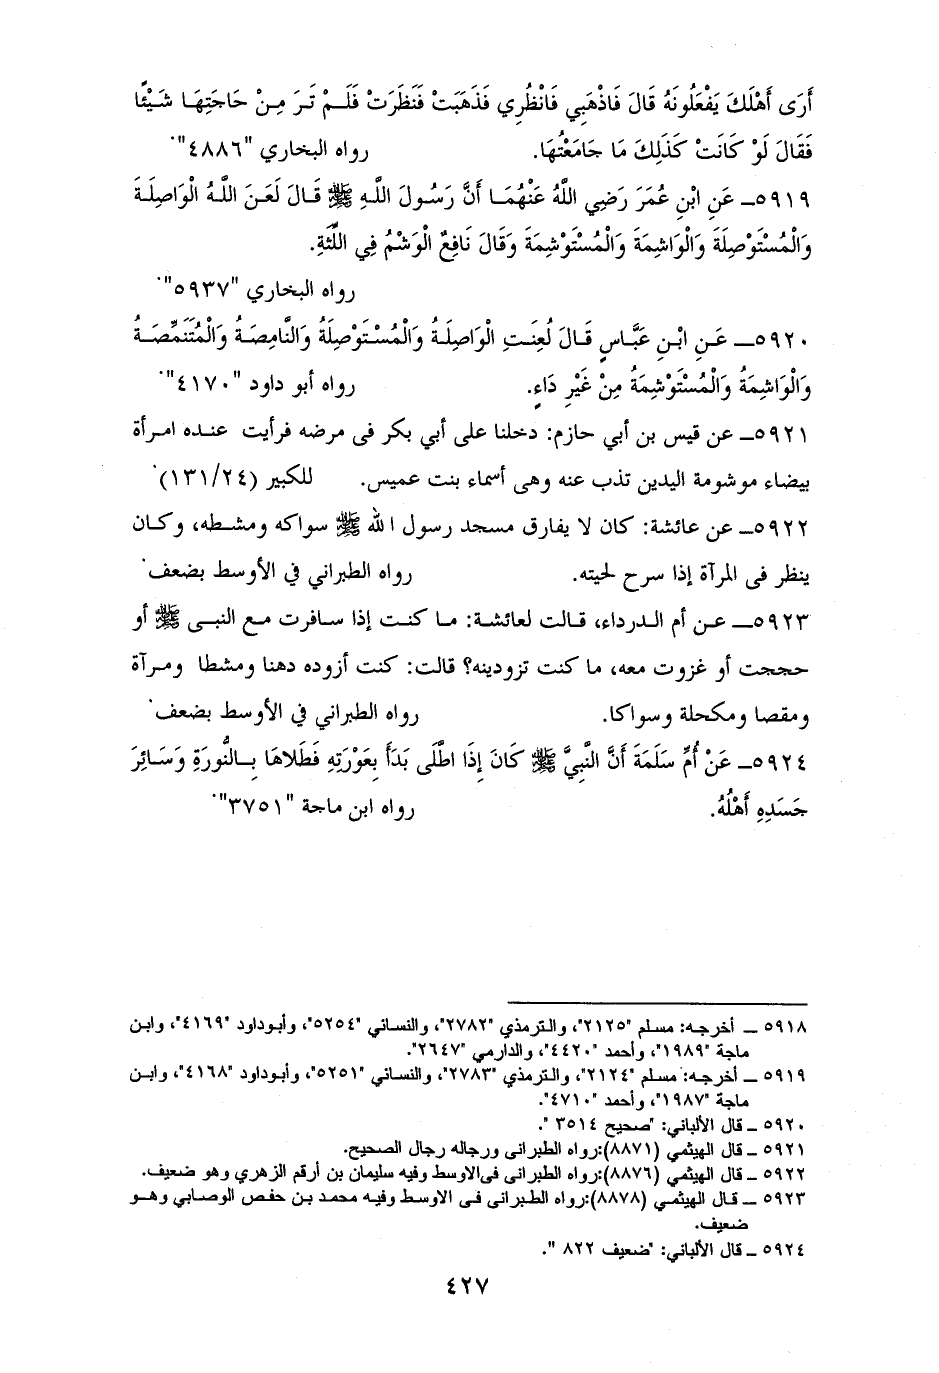 أَرَى أَهْلَكَ يَفْعَلُونَهُ قَالَ فَاذْهَبِي فَانْظُرِي فَذَهَبَتْ فَنَظَرَتْ فَلَمْ تَرَ مِنْ حَاجَتِهَا شَيْئًا
فَقَالَ لَوْ كَانَتْ كَذَلِكَ مَا جَامَعْتُهَا. رواه البخاري "٤٨٨٦".
٥٩١٩ــ عَنِ ابْنِ عُمَرَ رَضِي اللَّهُ عَنْهُمَا أَنَّ رَسُولَ اللَّهِ ﷺ قَالَ لَعَنَ اللَّهُ الْوَاصِلَةَ
وَالْمُسْتَوْصِلَةَ وَالْوَاشِمَةَ وَالْمُسْتَوْشِمَةَ وَقَالَ نَافِعٌ الْوَشْمُ فِي اللِّثَةِ.
رواه البخاري "٥٩٣٧".
٥٩٢٠ــ عَنِ ابْنِ عَبَّاسٍ قَالَ لُعِنَتِ الْوَاصِلَةُ وَالْمُسْتَوْصِلَةُ وَالنَّامِصَةُ وَالْمُتَنَمِّصَةُ
وَالْوَاشِمَةُ وَالْمُسْتَوْشِمَةُ مِنْ غَيْرِ دَاءٍ. رواه أبو داود "٤١٧٠".
٥٩٢١ــ عن قيس بن أبي حازم: دخلنا على أبي بكر فى مرضه فرأيت عنده امرأة
بيضاء موشومة اليدين تذب عنه وهى أسماء بنت عميس. للكبير (١٣١/٢٤).
٥٩٢٢ــ عن عائشة: كان لا يفارق مسجد رسول الله ﷺ سواكه ومشطه، وكان
ينظر فى المرآة إذا سرح لحيته. رواه الطبراني في الأوسط بضعف.
٥٩٢٣ــ عن أم الدرداء، قالت لعائشة: ما كنت إذا سافرت مع النبى ﷺ أو
حججت أو غزوت معه، ما كنت تزودينه؟ قالت: كنت أزوده دهنا ومشطا ومرآة
ومقصا ومكحلة وسواكا. رواه الطبراني في الأوسط بضعف.
٥٩٢٤ــ عَنْ أُمِّ سَلَمَةَ أَنَّ النَّبِيَّ ﷺ كَانَ إِذَا اطَّلَى بَدَأَ بِعَوْرَتِهِ فَطَلَاهَا بِالنُّورَةِ وَسَائِرَ
جَسَدِهِ أَهْلُهُ. رواه ابن ماجة "٣٧٥١".
٥٩١٨ ــ أخرجه: مسلم "٢١٢٥"، والترمذي "٢٧٨٢"، والنسائي "٥٢٥٤"، وأبوداود "٤١٦٩"، وابن
ماجة "١٩٨٩"، وأحمد "٤٤٢٠"، والدارمي "٢٦٤٧".
٥٩١٩ ــ أخرجه: مسلم "٢١٢٤"، والترمذي "٢٧٨٣"، والنسائي "٥٢٥١"، وأبوداود "٤١٦٨"، وابن
ماجة "١٩٨٧"، وأحمد "٤٧١٠".
٥٩٢٠ ــ قال الألباني: "صحيح ٣٥١٤ ".
٥٩٢١ ــ قال الهيثمي (٨٨٧١):رواه الطبرانى ورجاله رجال الصحيح.
٥٩٢٢ ــ قال الهيثمي (٨٨٧٦):رواه الطبرانى فى الاوسط وفيه سليمان بن أرقم الزهري وهو ضعيف.
٥٩٢٣ ــ قال الهيثمي (٨٨٧٨):رواه الطبرانى فى الاوسط وفيه محمد بن حفص الوصابي وهو
ضعيف.
٥٩٢٤ ــ قال الألباني: "ضعيف ٨٢٢ ".
٤٢٧